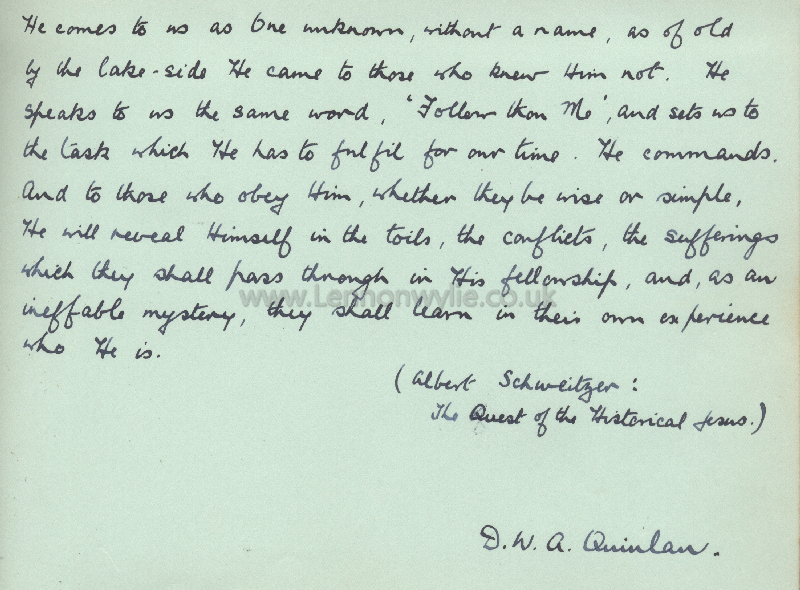 He comes to us as One unknown, without a name, as of old
by the lake-side He came to those who knew Him not. He
speaks to us the same word, 'Follow thou Me', and sets us to
the task which He has to fulfil for our time. He commands.
And to those who obey Him, whether they be wise or simple,
He will reveal Himself in the toils, the conflicts, the sufferings
which they shall pass through in His fellowship, and, as an
www.Lennonwylie.co.uk
ineffable mystery, they shall learn in their own experience
who He is.
(Albert Schweitzer:
The Quest of the Historical Jesus.)
D. W. A. Quinlan.